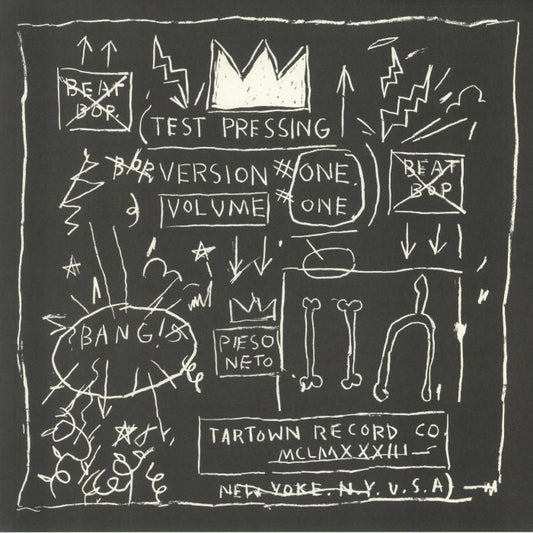 BEAT
BOP
(TEST PRESSING
BOP VERSION #ONE.
VOLUME #ONE.)
BEAT
BOP
!BANG!
PIESO
NETO
TARTOWN RECORD CO.
MCLMXXXIII
NEW YOKE. N.Y. U.S.A)